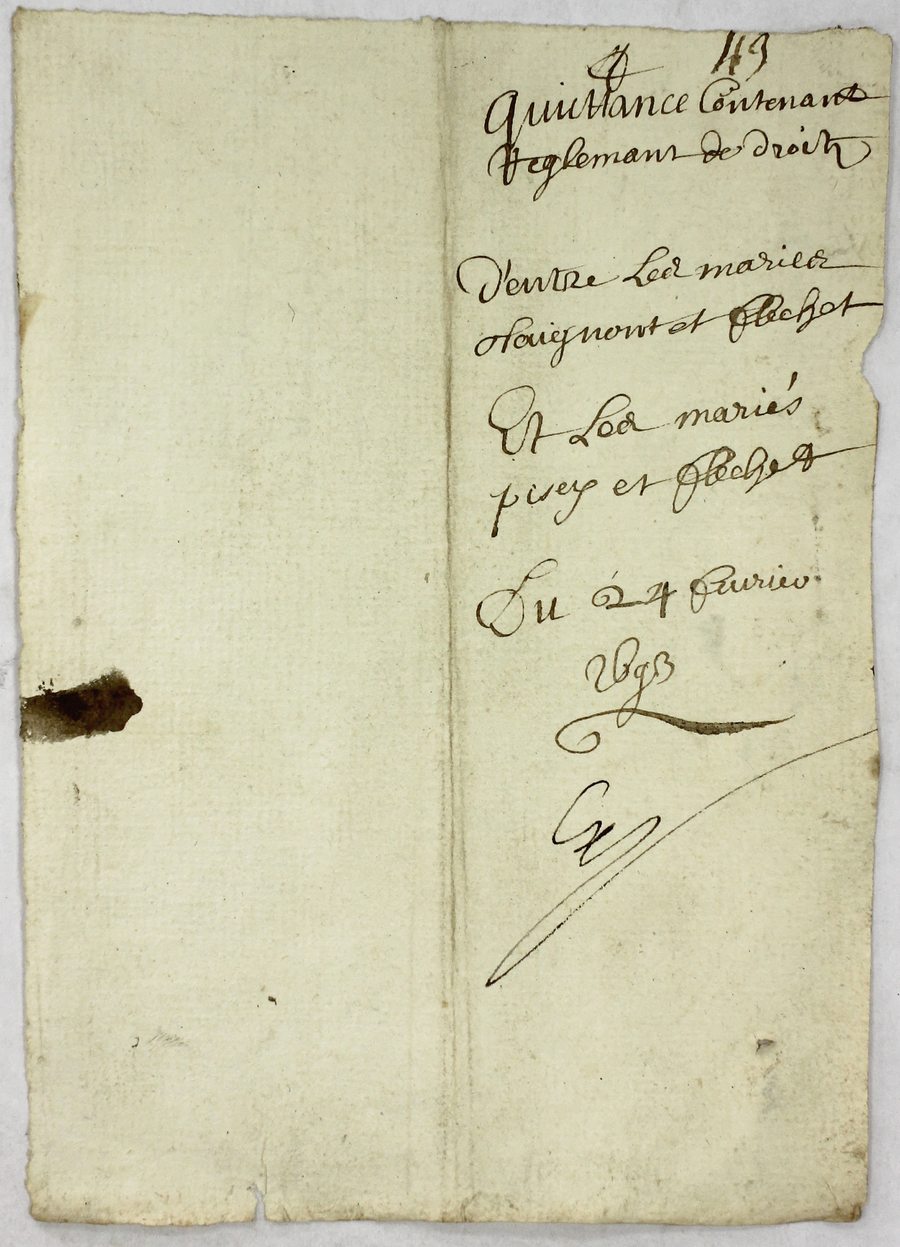 43
Quittance Contenant
Reglemant de droitz
D'entre Les maries
et flechet
Et Les mariés
pisey et flechet
Du 24 feurier
1693